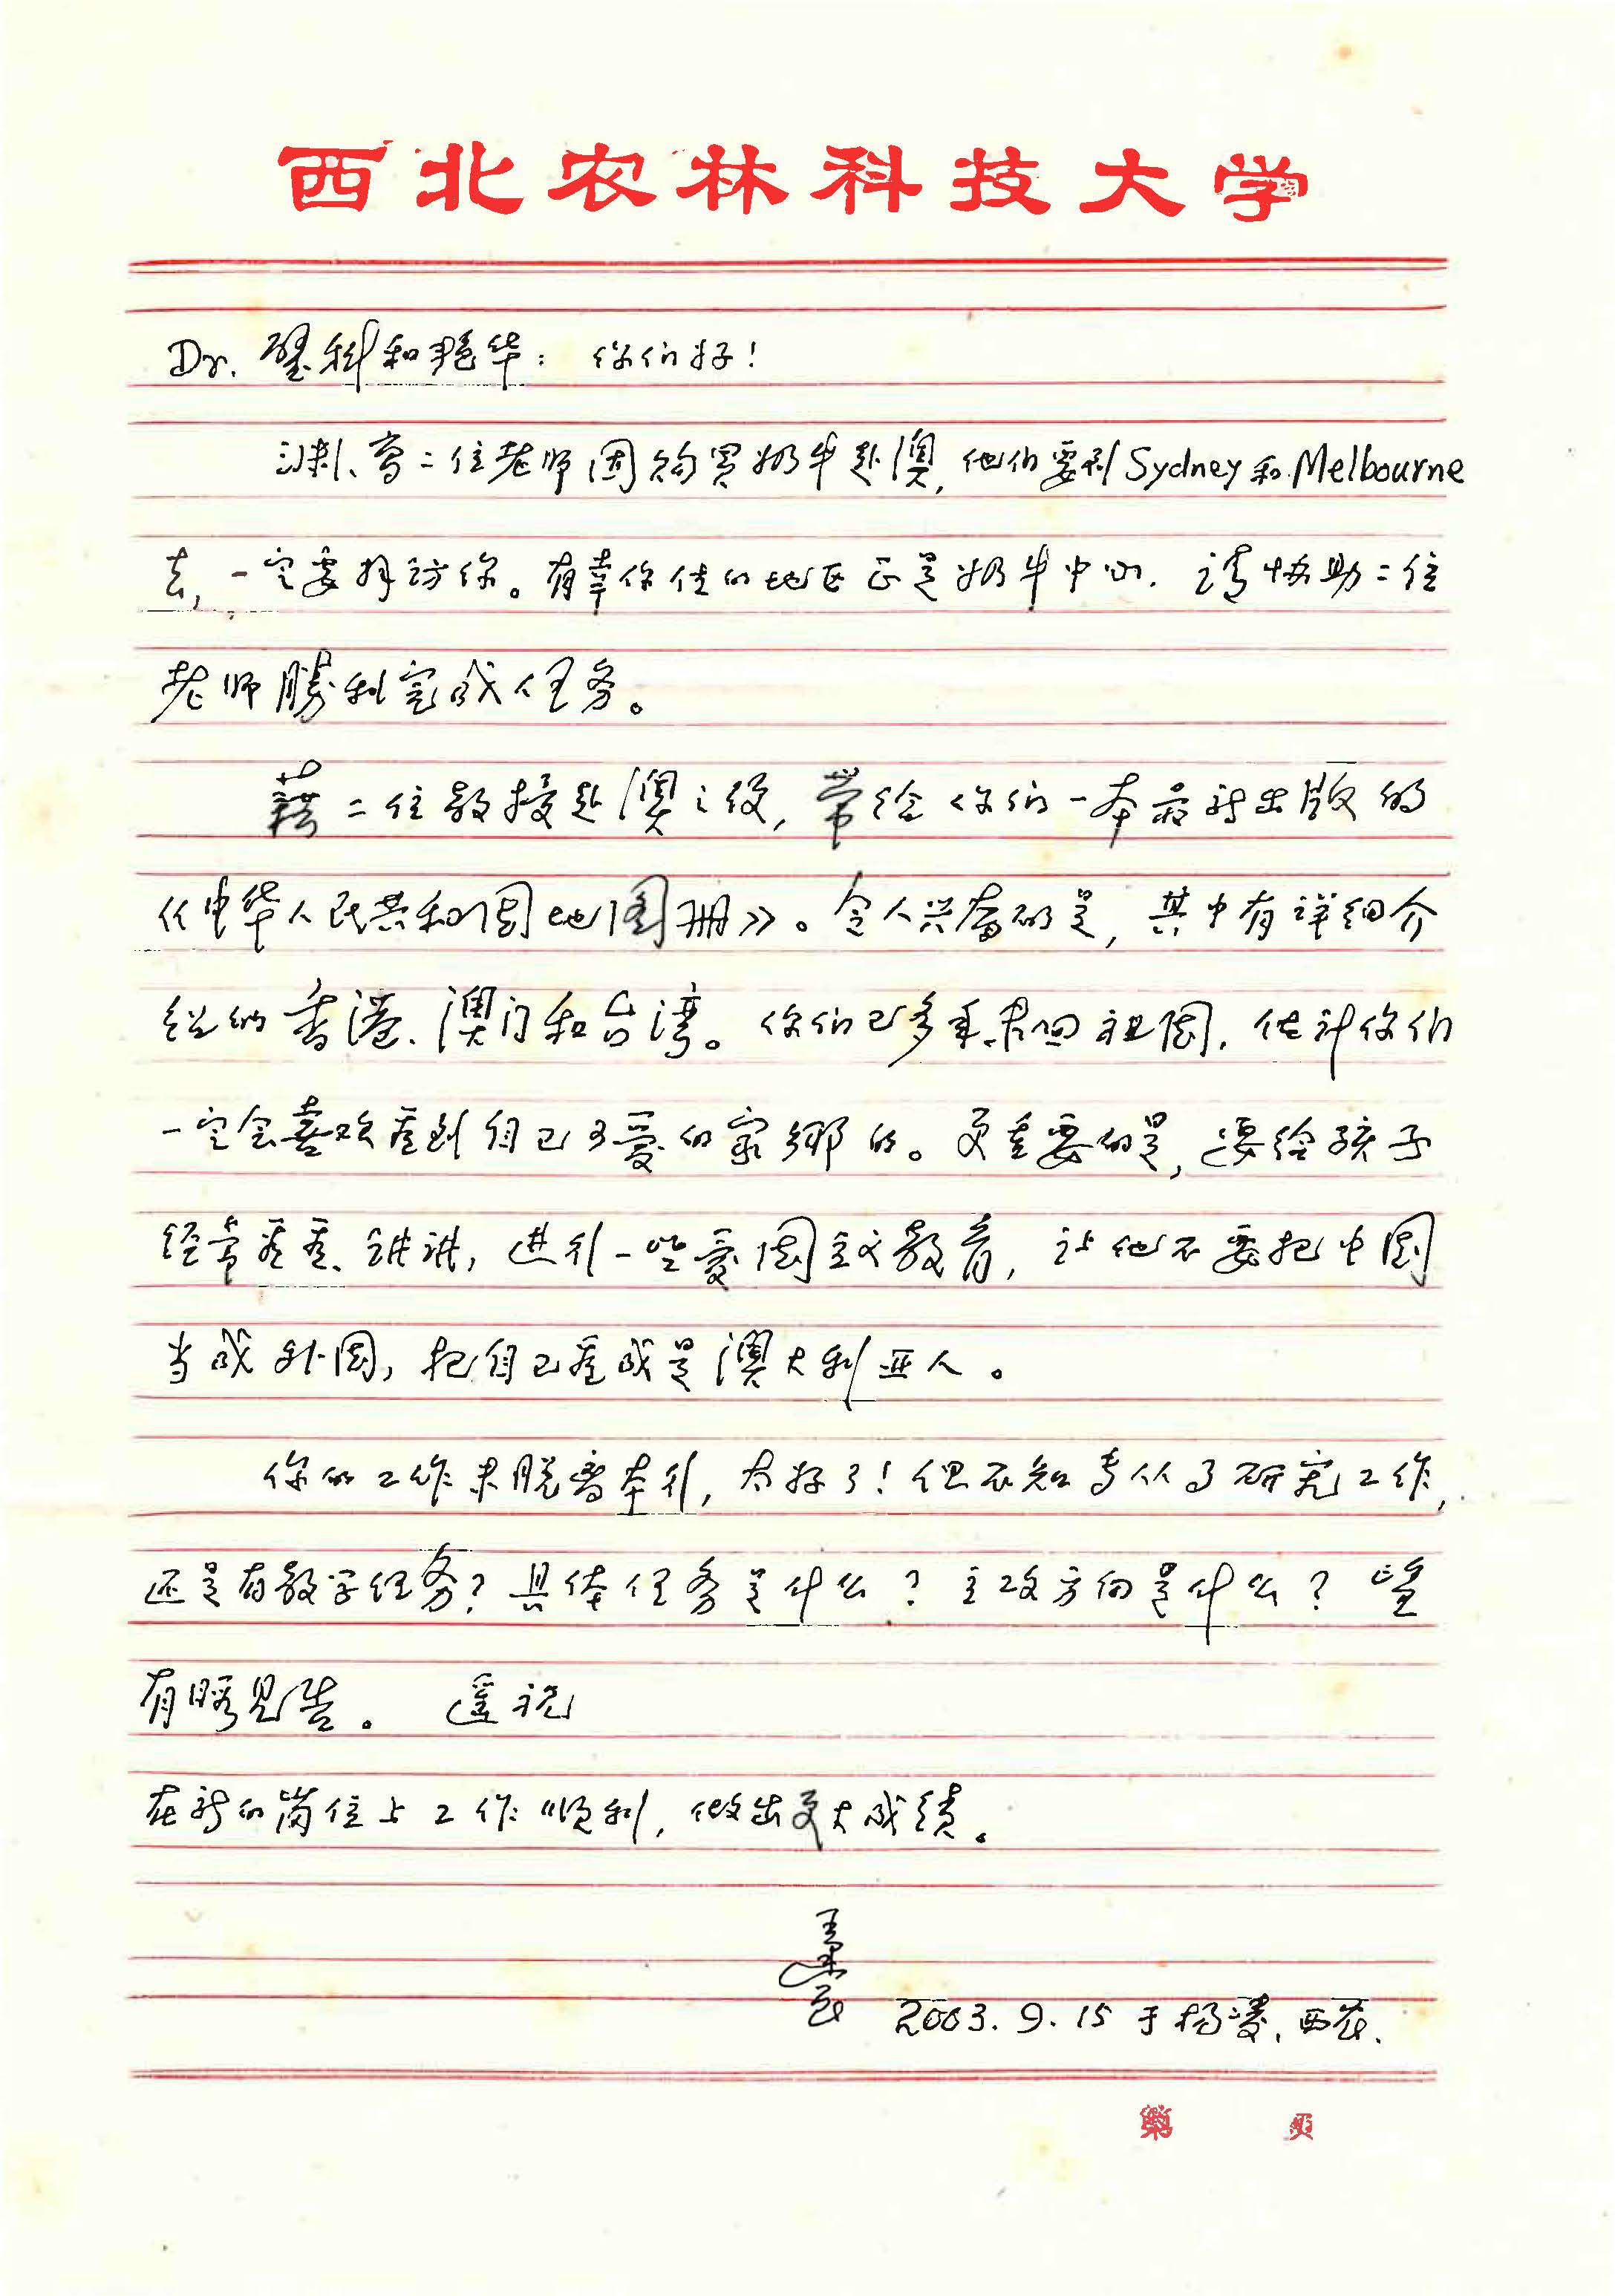 西北农林科技大学
Dr. 科和艳华：你们好！
高二位老师因购買奶牛赴澳，他们要到Sydney和Melbourne
去，一定要拜访你。有幸你住的地区正是奶牛中心．请协助二位
老师勝利完成任务。
藉二位教授赴澳之役，带给你们一本最新出版的
《中华人民共和国地图册》。令人兴奋的是，其中有详细介
绍的香港、澳门和台湾。你们已多年未回祖国，估计你们
一定会喜欢看到自己可爱的家鄉的。更重要的是，要给孩子
经常看看、讲讲，进行一些爱国主义教育，让他不要把中国
当成外国，把自己看成是澳大利亚人。
你的工作未脱离本行，太好了！但不知专从事研究工作，
还是有教学任务？具体任务是什么？主攻方向是什么？望
有暇见告。 遥祝
在新的岗位上工作顺利，做出更大成绩。
2003.9.15于杨凌．西农．
第 页